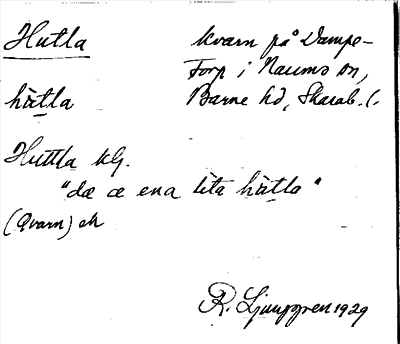 Hutla kvarn på Dampe-
torp i Naums sn,
hùtla Barne hd, Skarab. l.
Huttla klg.
"dæ æ ena lita hùtla"
(Qvarn) ek
R. Ljunggren 1929